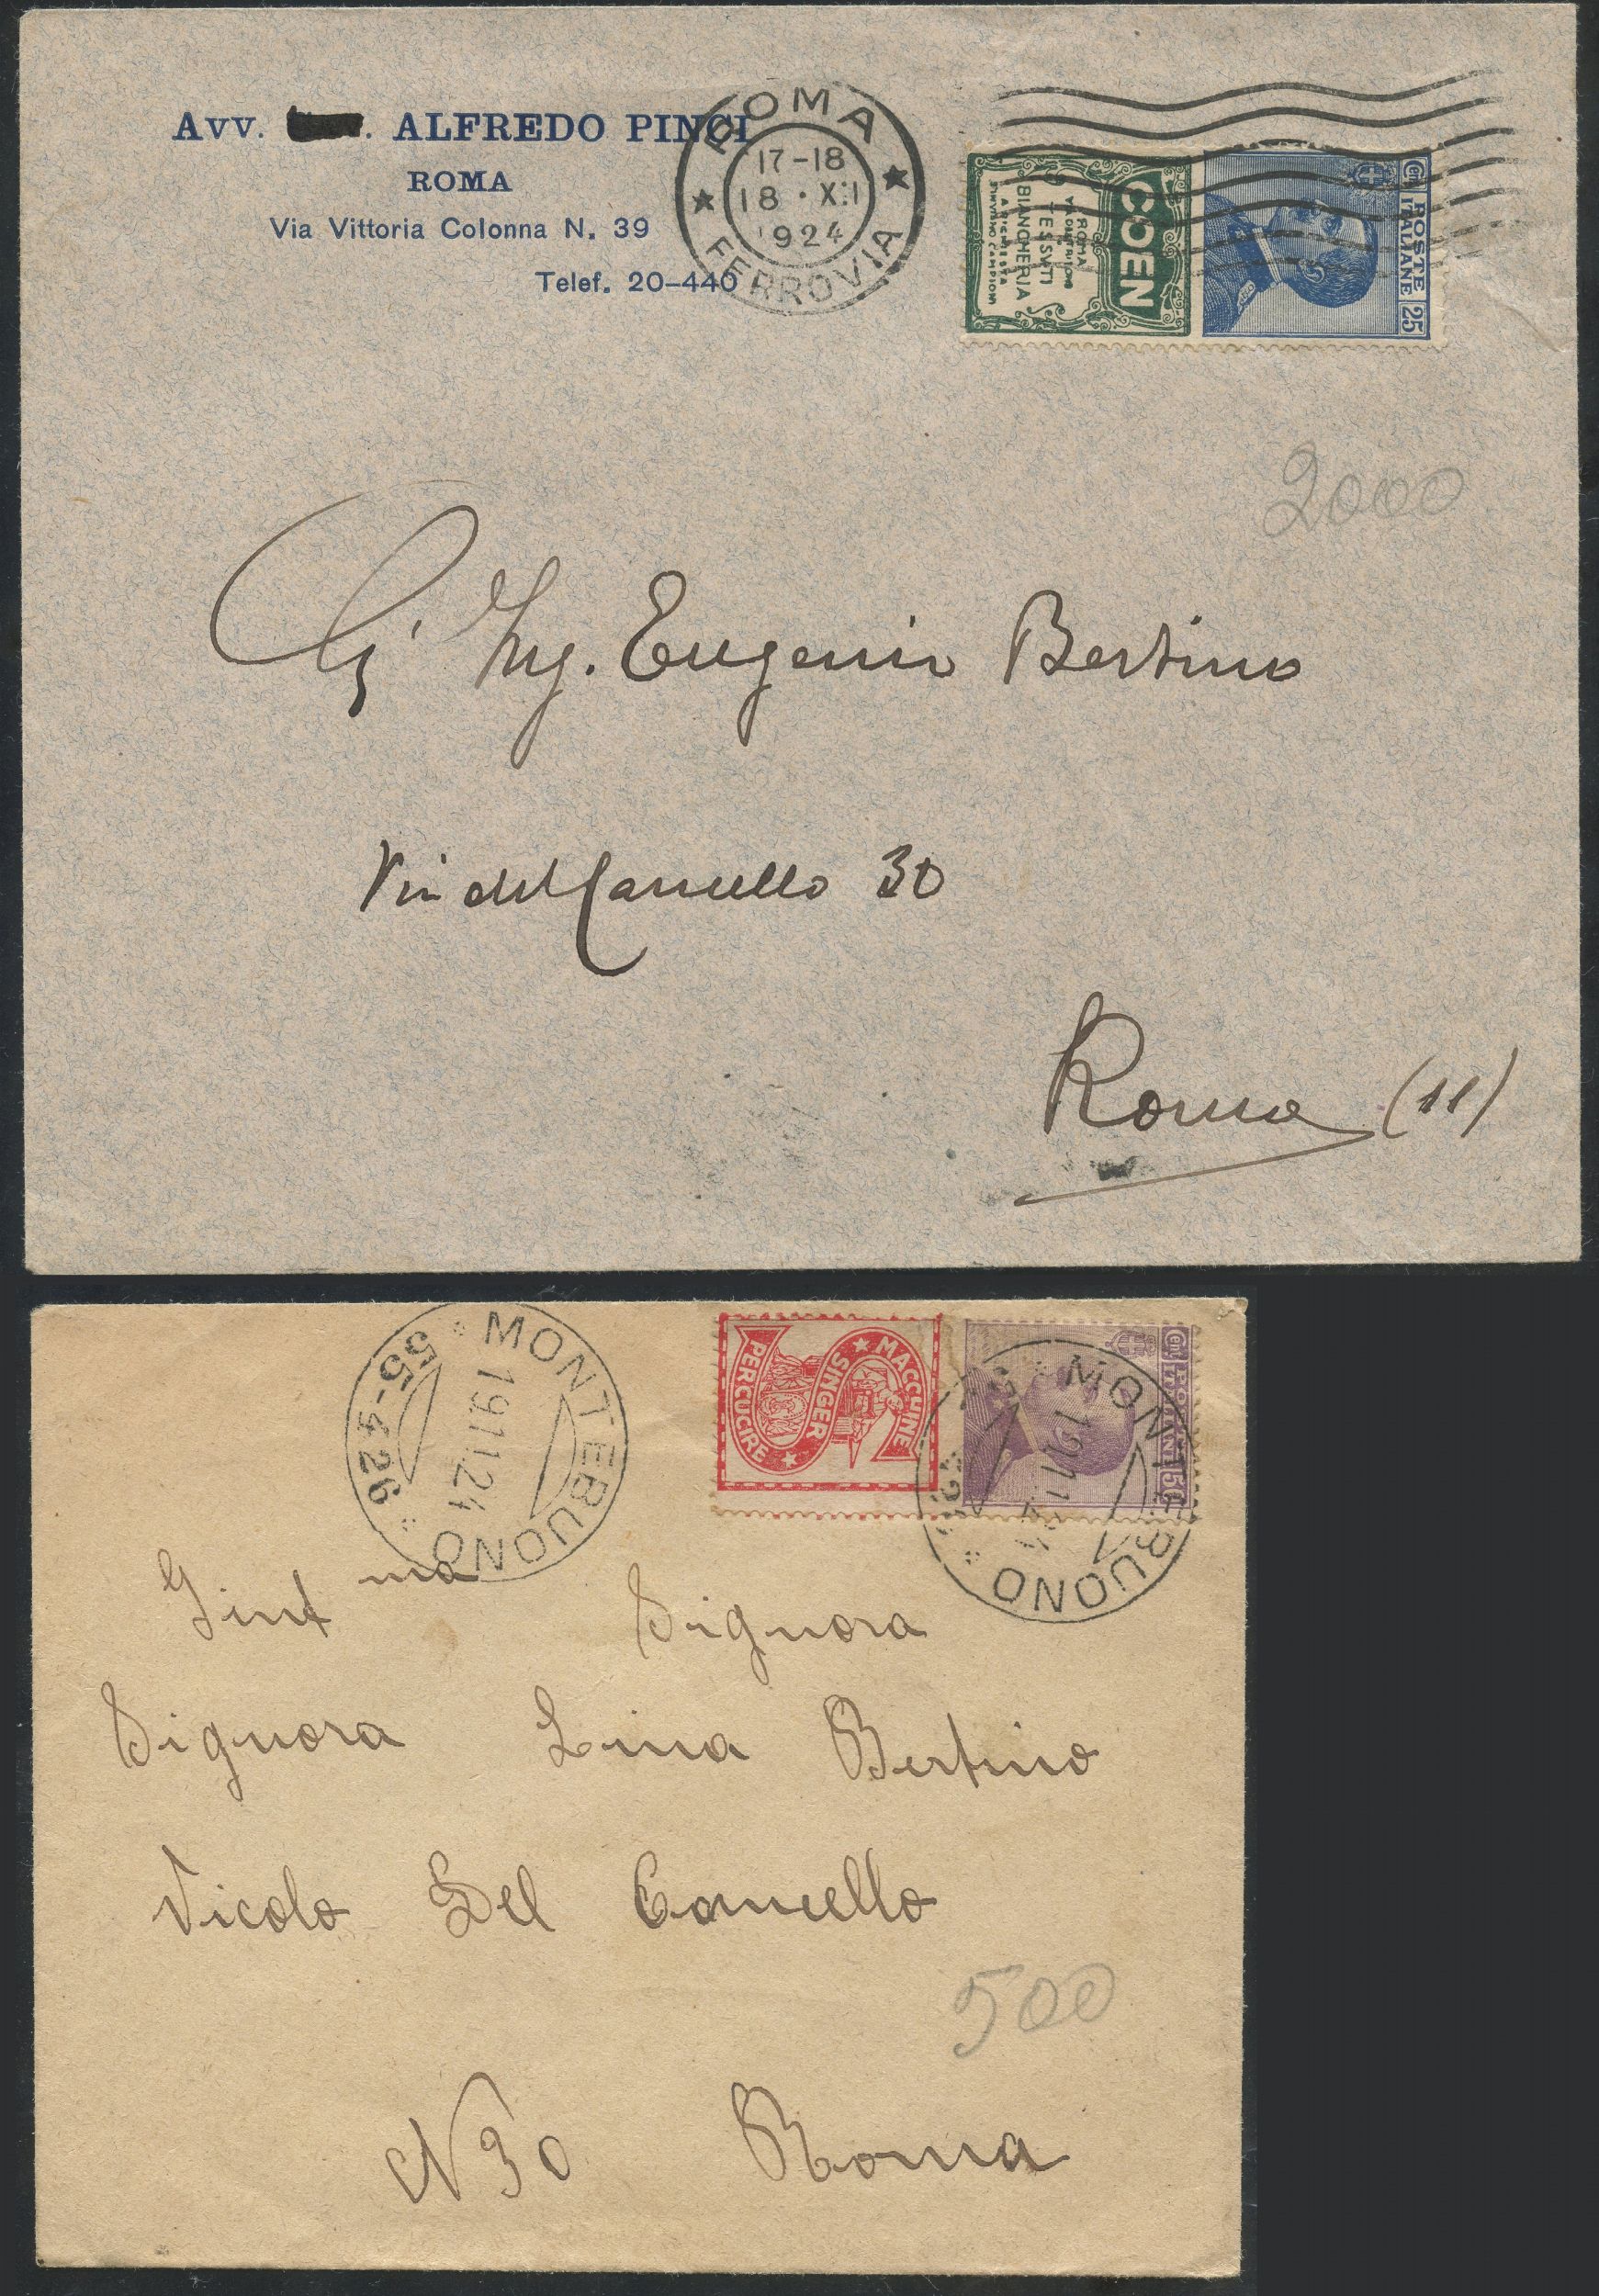 Avv. . ALFREDO PINCI
ROMA
Via Vittoria Colonna N. 39
Telef. 20-440
ROMA
17-18
18 · XII
1924
FERROVIA
COEN
ROMA
TESSVTI
BIANCHERIA
A RICHIESTA
SI INVIANO CAMPIONI
POSTE
ITALIANE
Cent
25
2000
Ing. Eugenio Bertino
Via del Cancello 30
Roma (11)
MONTEBUONO
19.11.24
55-426
MACCHINE
SINGER
PER CUCIRE
POSTE
ITALIANE
Cent
50
MONTEBUONO
Gent ma Signora
Signora Lina Bertino
Vicolo Del Cancello
500
N 30 Roma